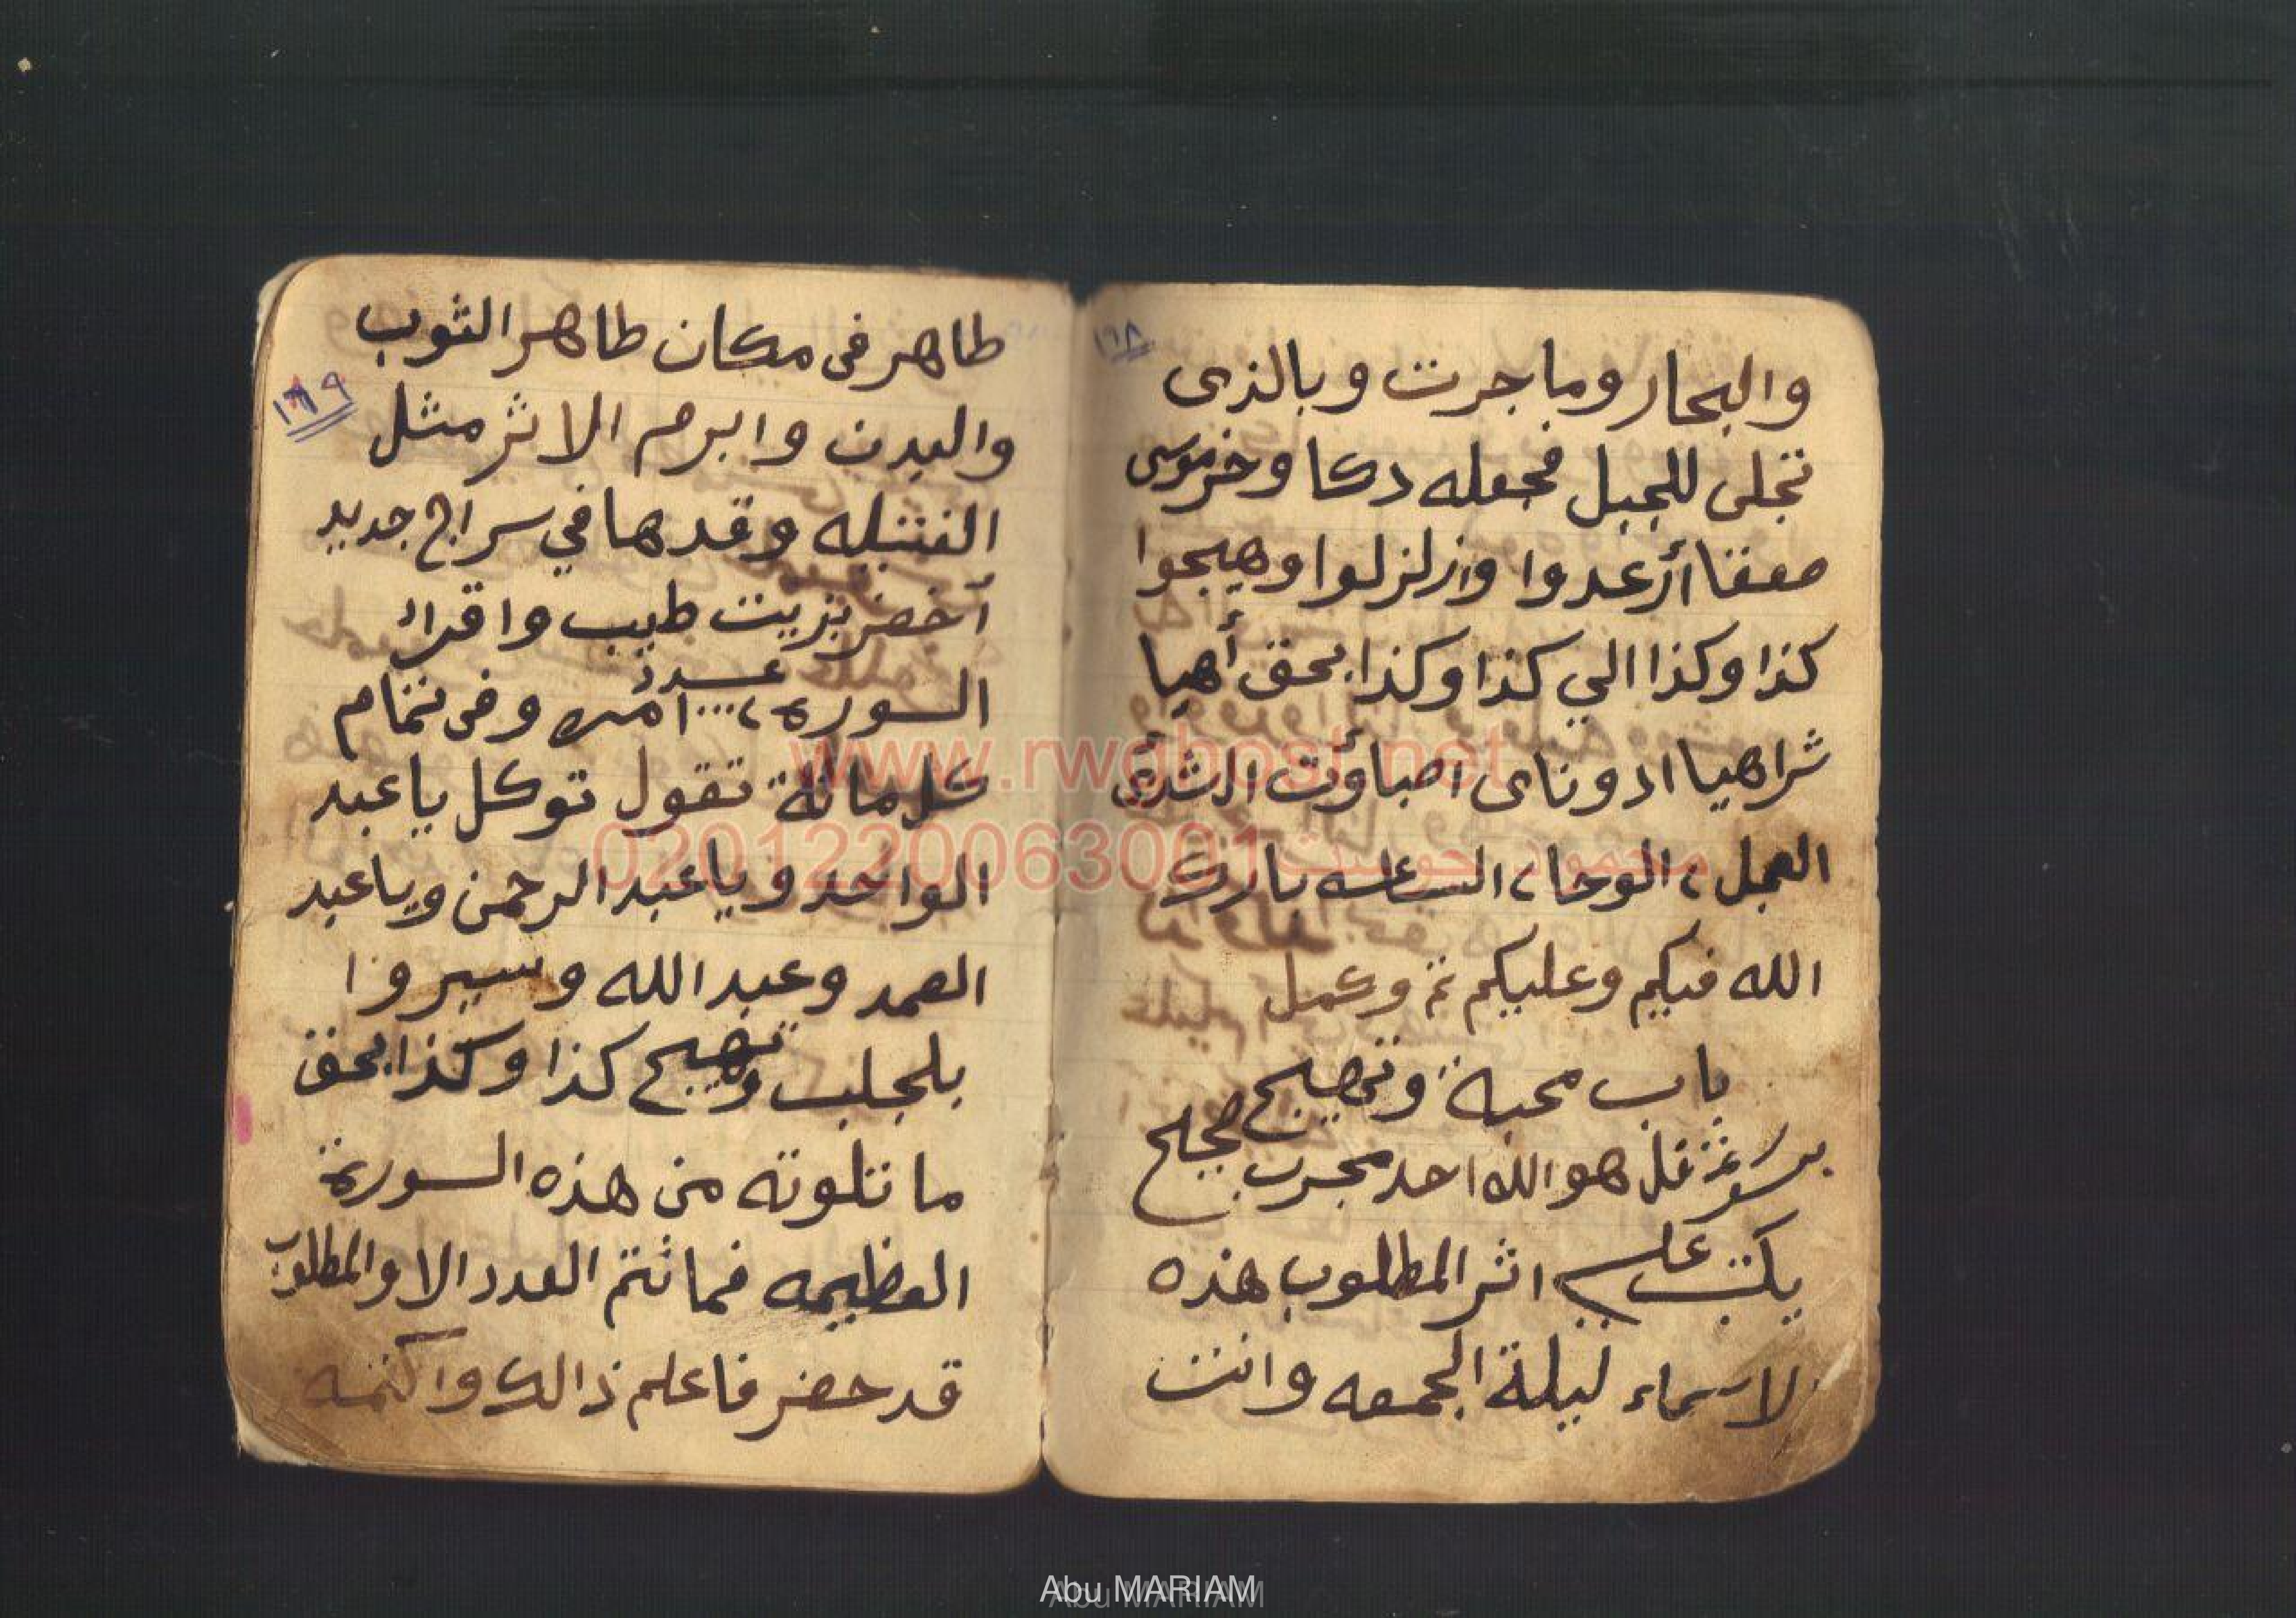 ١٦٨
والبحار وما جرت وبالذى
تجلى للجبل فجعله دكا وخر موسى
صعقا أرعدوا وازلزلوا وهيجوا
كذا وكذا الي كذا وكذا بحق أهيا
شراهيا ادوناى اصباؤت
العجل، الوحا، الساعه بارك
الله فيكم وعليكم تم وكمل
باب محبة وتهيج
بسورة قل هو الله احد مجرب صحيح
يكتب على اثر المطلوب هذه
الاسماء ليلة الجمعه وانت
١٦٩
طاهر فى مكان طاهر الثوب
والبدن وابرم الاثر مثل
الفتيله وقدها في سراج جديد
أخضر بزيت طيب واقرائ
السورة، عدد ١٠٠٠ امره وفى تمام
كل مائة تقول توكل يا عبد
الواحد ويا عبد الرحمن ويا عبد
الصمد وعبد الله وسيروا
بلجلب وتهيج كذا وكذا بحق
ما تلوته من هذه السورة
العظيمه فما تتم العدد الا والمطلوب
قد حضر فاعلم ذالك واكتمه
www.rwghost.net
0201220063001
Abu MARIAM